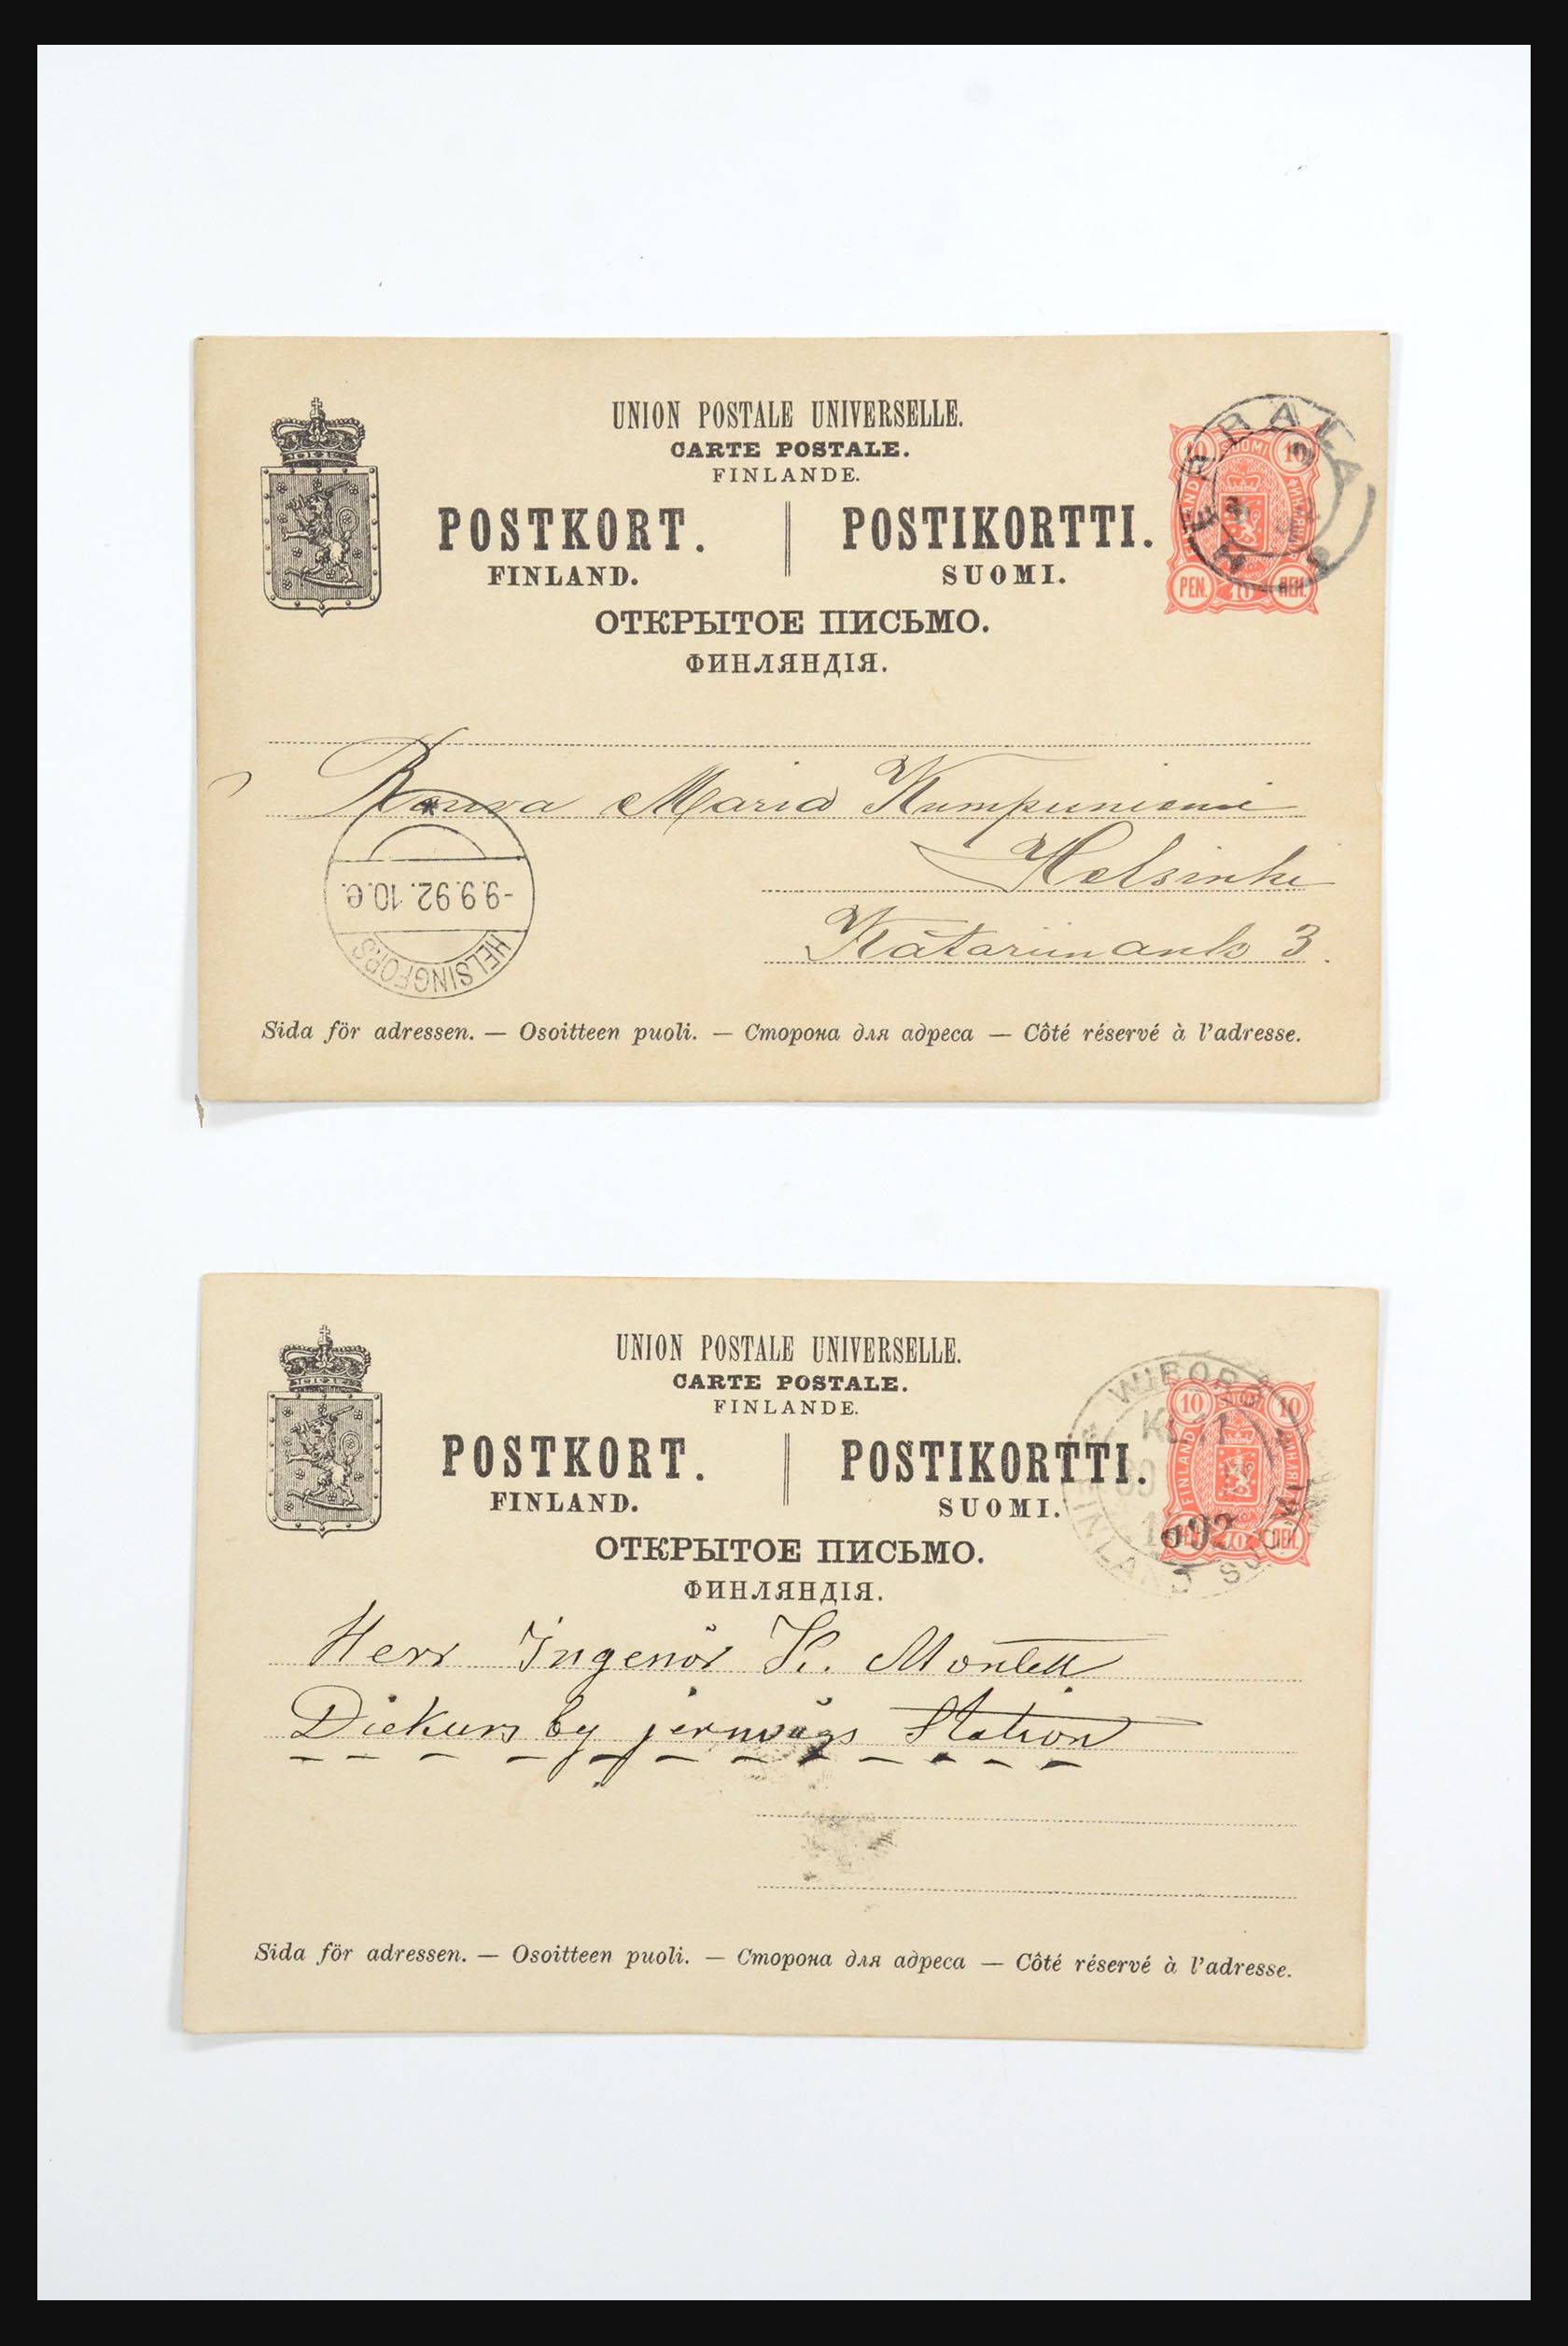 UNION POSTALE UNIVERSELLE.
CARTE POSTALE.
FINLANDE.
POSTKORT. POSTIKORTTI.
FINLAND. SUOMI.
ОТКРЫТОЕ ПИСЬМО.
ФИНЛЯНДІЯ.
10 SUOMI 10
PEN. 10 ПЕН.
Rouva Maria Kumpunieni
Helsinki
3.
-9.9.92. 10.e.
HELSINGFORS
Sida för adressen. — Osoitteen puoli. — Сторона для адреса — Côté réservé à l'adresse.
UNION POSTALE UNIVERSELLE.
CARTE POSTALE.
FINLANDE.
POSTKORT. POSTIKORTTI.
FINLAND. SUOMI.
ОТКРЫТОЕ ПИСЬМО.
ФИНЛЯНДІЯ.
WIBORG
KL 11
FINLAND SUOMI
10 SUOMI 10
FINLAND
10 ПЕН.
Herr Ingenör K. Montell
Dickursby jernvägs Station
Sida för adressen. — Osoitteen puoli. — Сторона для адреса — Côté réservé à l'adresse.